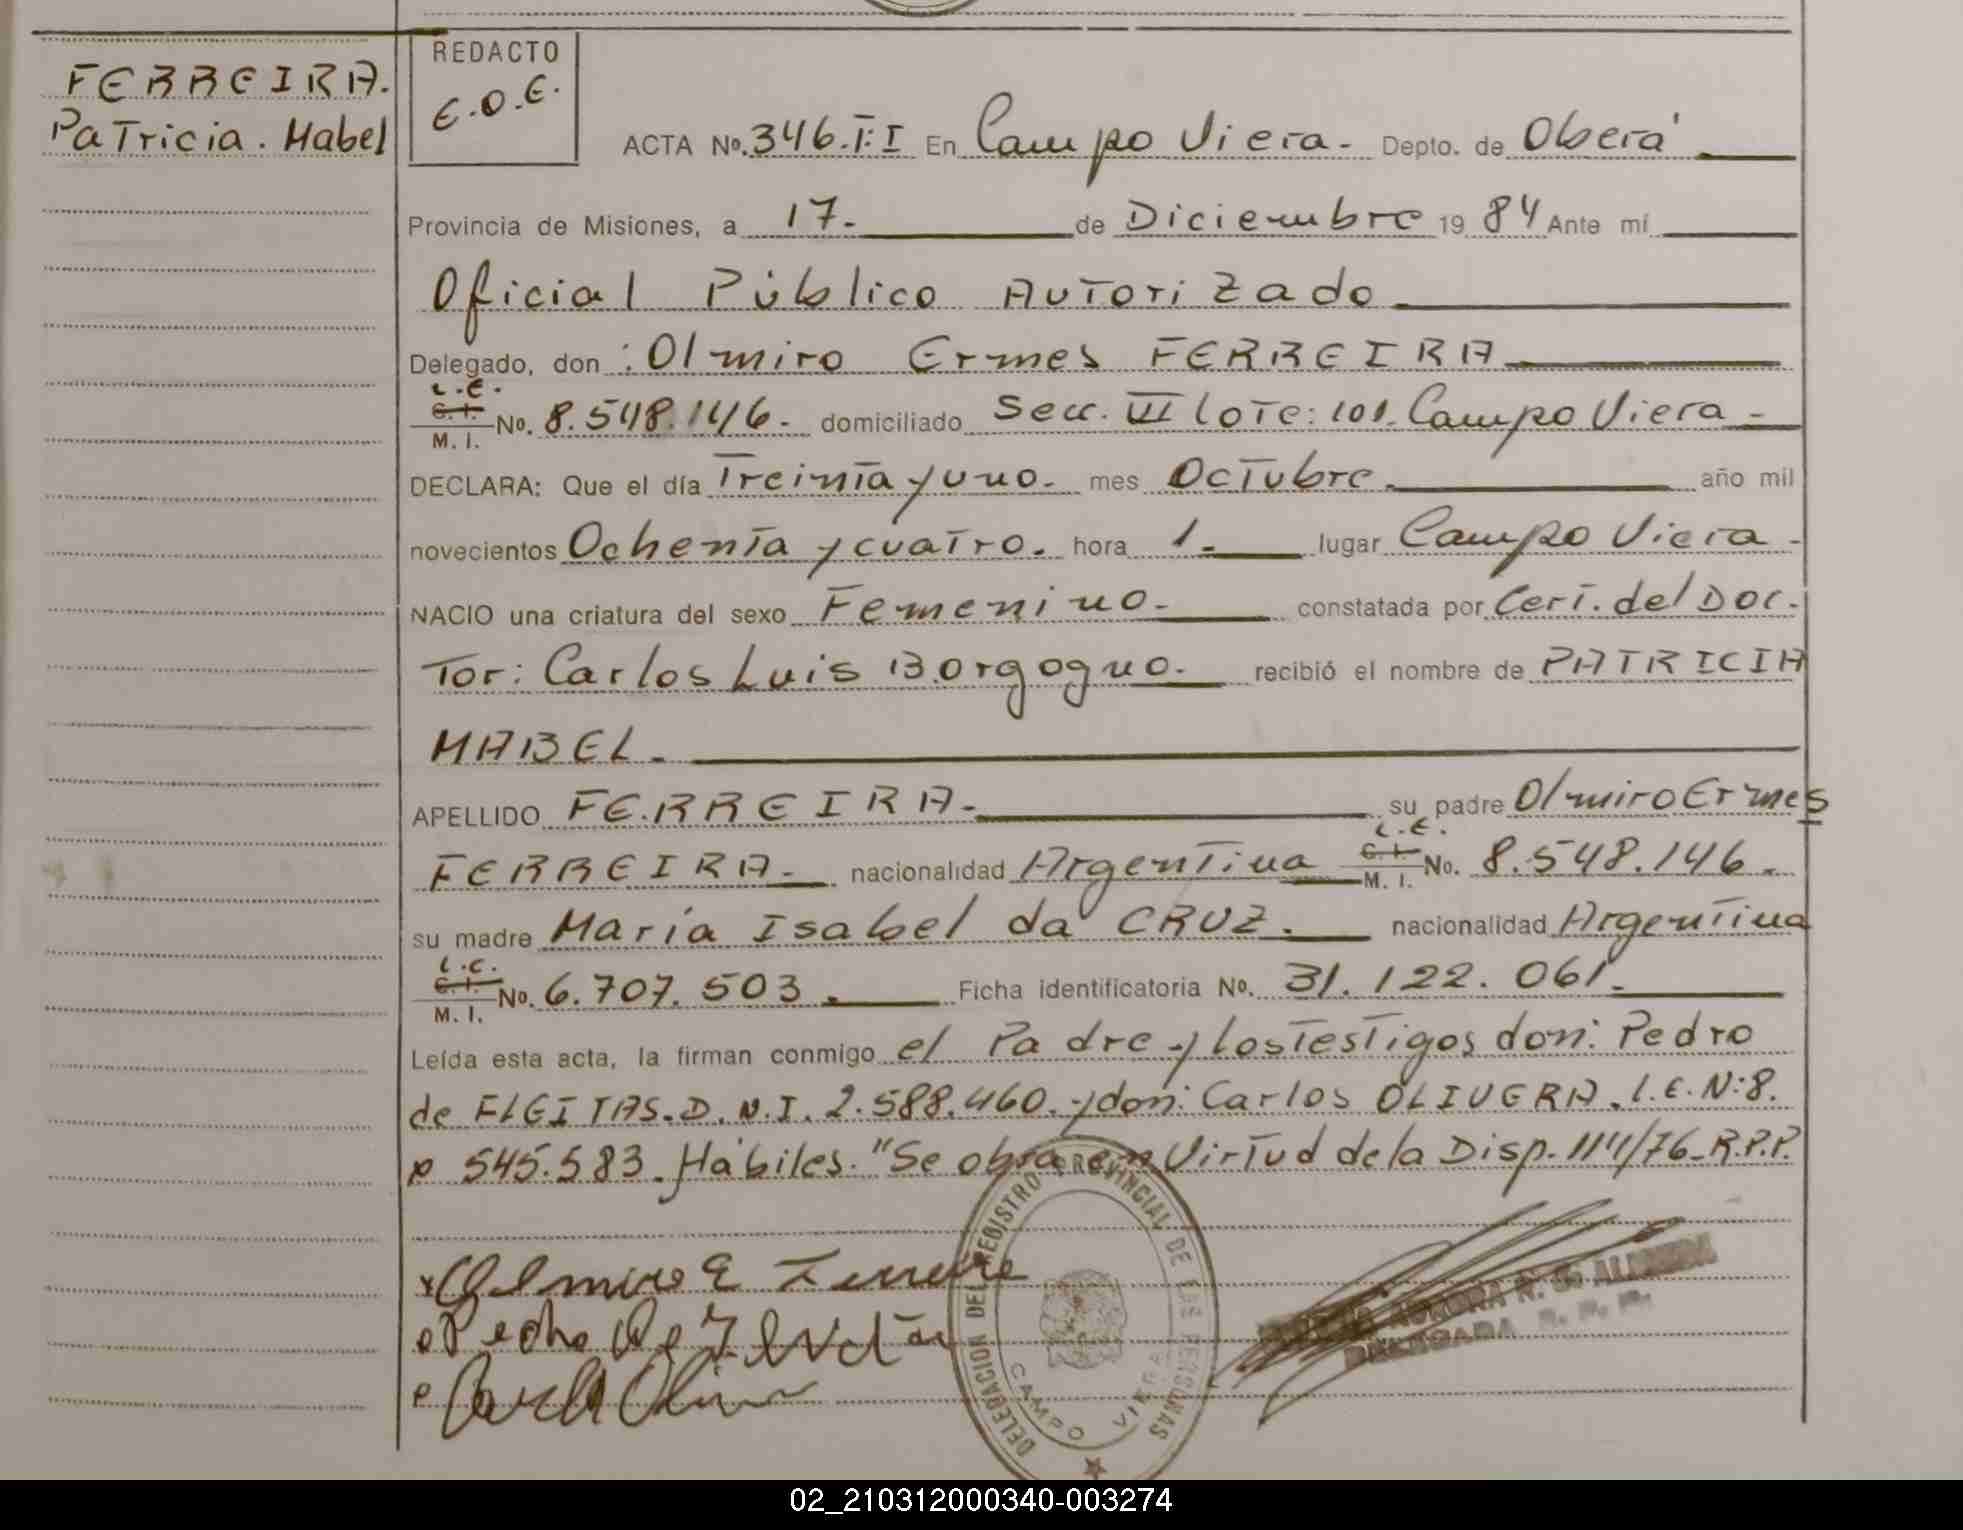 FERREIRA.
Patricia. Mabel
REDACTO
E.O.E.
ACTA No. 346.T:I En Campo Viera.- Depto. de Oberá
Provincia de Misiones, a 17.- de Diciembre 1984 Ante mí
Oficial Público Autorizado
Delegado, don : Olmiro Ermes FERREIRA
L.E.
C.I.
M. I. No. 8.548.146.- domiciliado Secc. III lote: 101. Campo Viera -
DECLARA: Que el día Treinta y uno.- mes Octubre. año mil
novecientos Ochenta y cuatro. hora 1.- lugar Campo Viera -
NACIO una criatura del sexo Femenino.- constatada por Cert. del Doc-
tor: Carlos Luis Borgogno.- recibió el nombre de PATRICIA
MABEL.-
APELLIDO FERREIRA.- su padre Olmiro Ermes
L.E.
FERREIRA.- nacionalidad Argentina C.I. M. I. No. 8.548.146.-
su madre María Isabel da CRUZ.- nacionalidad Argentina
L.C.
C.I.
M. I. No. 6.707.503.- Ficha identificatoria No. 31.122.061.-
Leída esta acta, la firman conmigo el Padre y los Testigos don: Pedro
de FLEITAS. D.N.I. 2.588.460. y don: Carlos OLIVERA. L.E. N:8.
545.583. Hábiles. "Se obra en Virtud de la Disp. 114/76-R.P.P.
Olmiro E Ferreira
Pedro De
Carlos
DELEGACION DEL REGISTRO PROVINCIAL DE LAS PERSONAS
CAMPO VIERA
AURORA N. ALMEIDA
DELEGADA R. P. P.
02_210312000340-003274